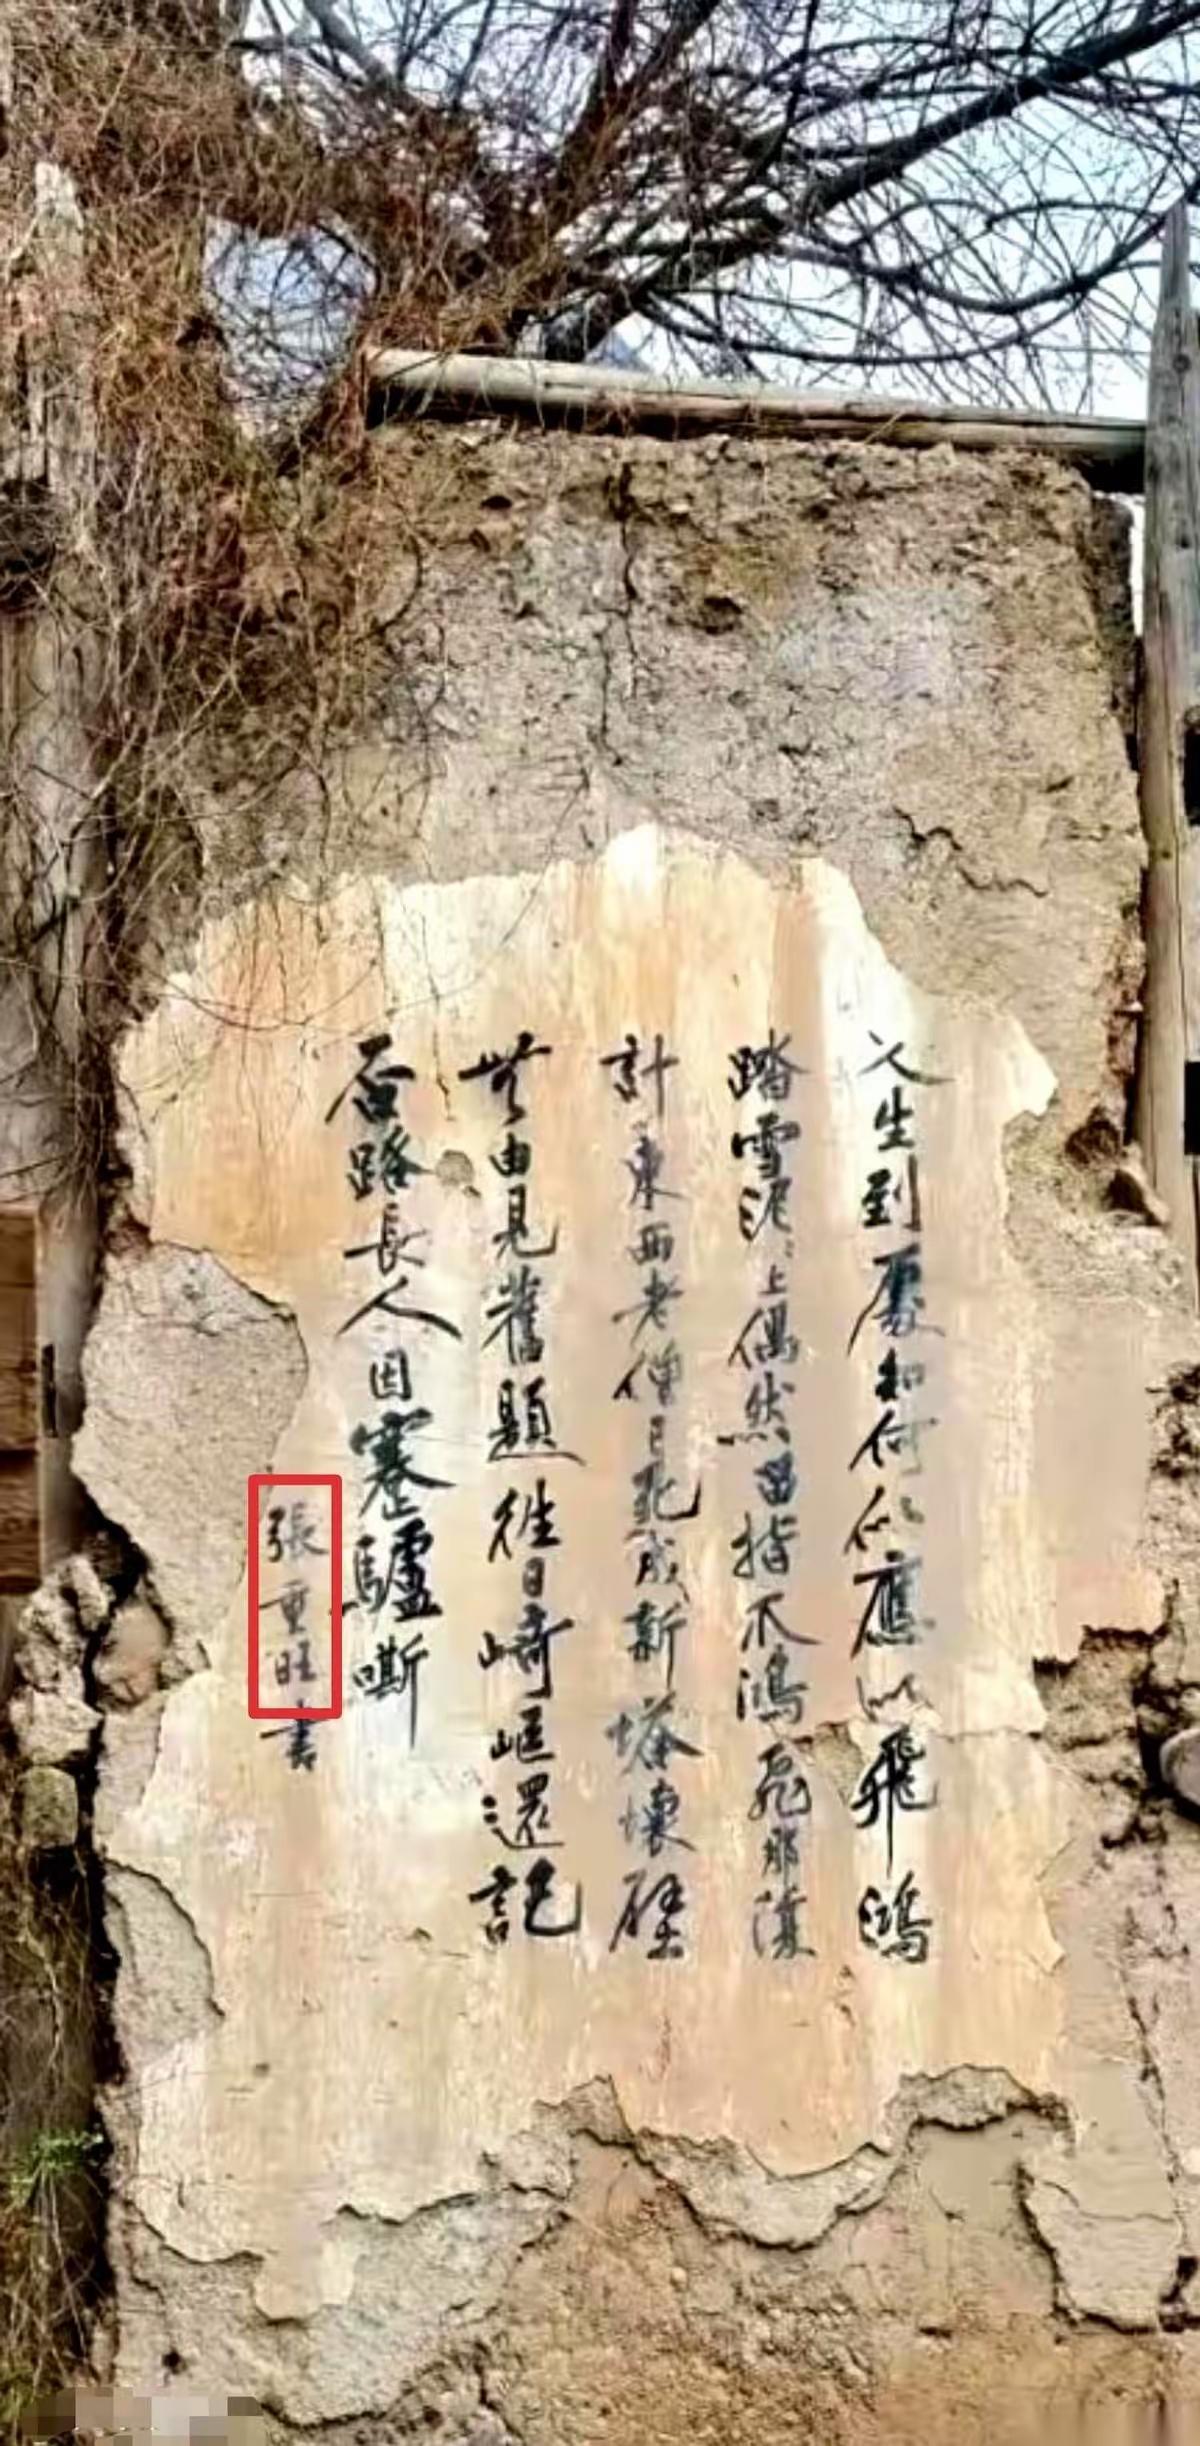 人生到處知何似應似飛鴻
踏雪泥々上偶然留指爪鴻飛那復
計東西老僧已死成新塔壞壁
無由見舊題往日崎嶇還記
否路長人困蹇驢嘶
張重旺書